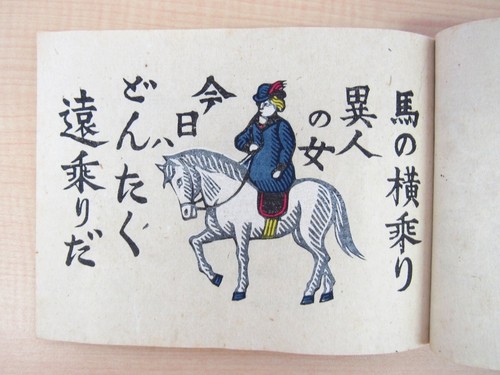 馬の横乗り
異人
の女
今日ハ
どんたく
遠乗りだ